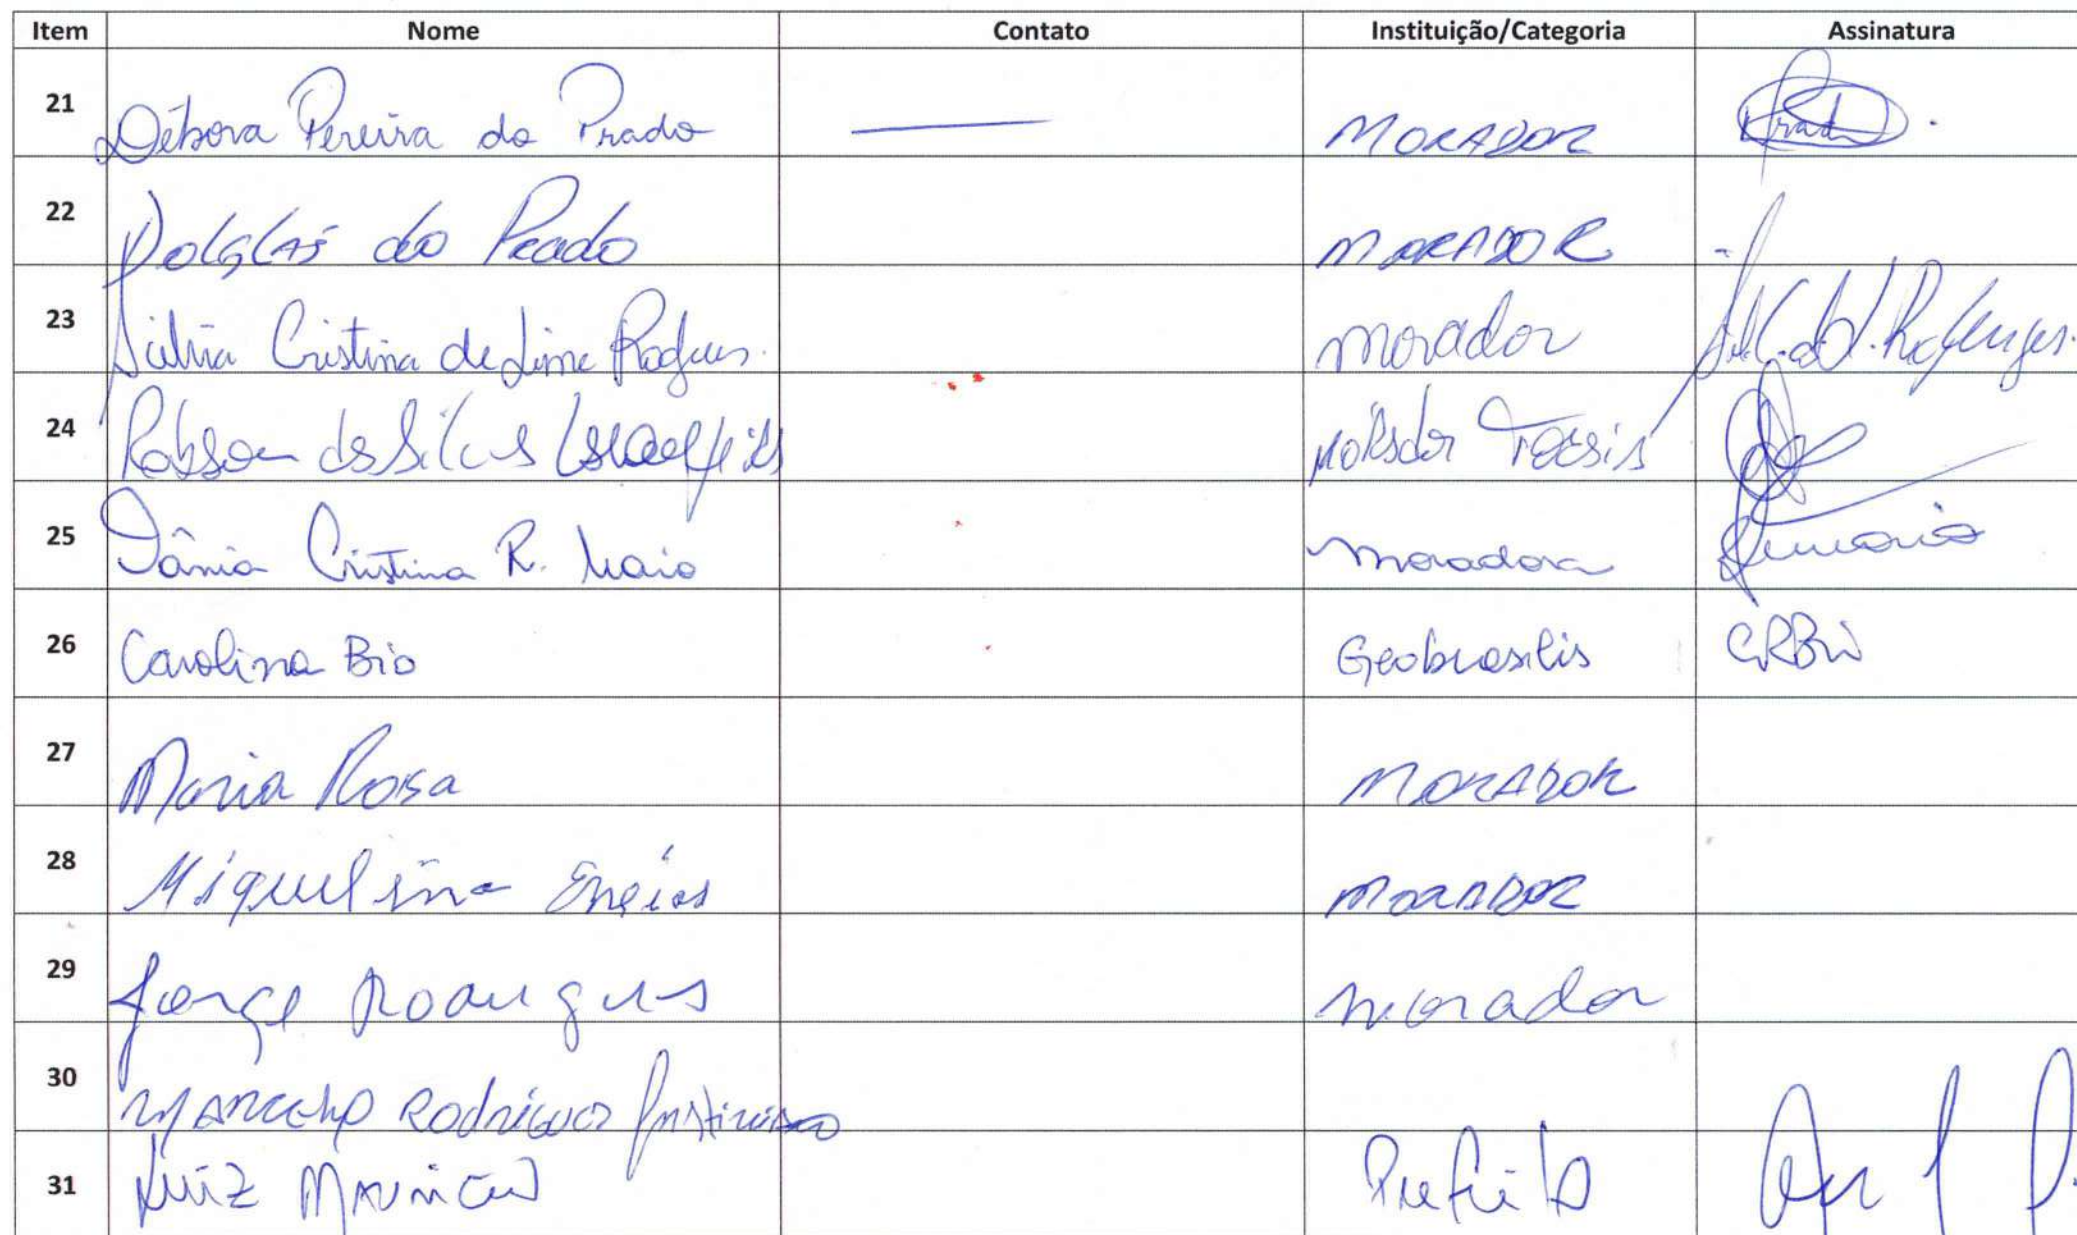 Item Nome Contato Instituição/Categoria Assinatura
21 Débora Pereira do Prado — MORADOR Prado
22 Dolglas do Prado MORADOR
23 Silvia Cristina de Lima morador
24 Robson da Silva morador
25 Tânia Cristina R. Maio moradora
26 Carolina Bio Geobrasilis CRBio
27 Maria Rosa MORADOR
28 Miquelina Enéias MORADOR
29 Jorge Rodrigues morador
30 Marcelo Rodrigues
31 Luiz Mauricio Prefeito